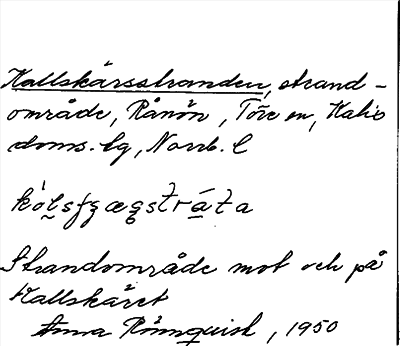 Kallskärsstranden, strand-
område, Rånön, Töre sn, Kalix
doms. bg, Norrb. l
Strandområde mot och på
Kallskäret
Anna Rönnquist, 1950